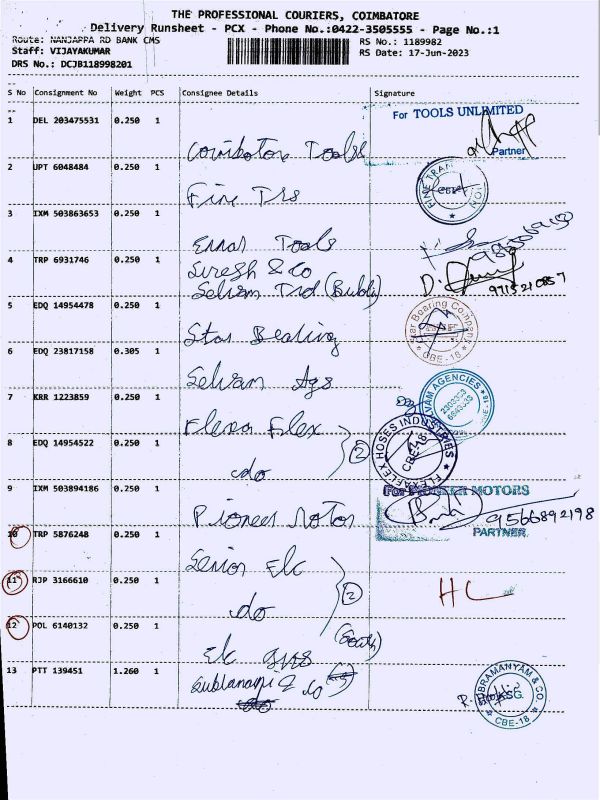 THE PROFESSIONAL COURIERS, COIMBATORE
Delivery Runsheet - PCX - Phone No.:0422-3505555 - Page No.:1
Route: NANJAPPA RD BANK CMS
RS No.: 1189982
Staff: VIJAYAKUMAR
RS Date: 17-Jun-2023
DRS No.: DCJB118998201
S No Consignment No Weight PCS Consignee Details Signature
1 DEL 203475531 0.250 1
For TOOLS UNLIMITED
Partner
Coimbatore Tools
2 UPT 6048484 0.250 1
Fine Trs
FINE TRA
3 IXM 503863653 0.250 1
Tools
4 TRP 6931746 0.250 1
Suresh & Co
Selvam Trd
5 EDQ 14954478 0.250 1
Star Bearing
Star Bearing Company
CBE-18
6 EDQ 23817158 0.305 1
Selvam Ags
VAM AGENCIES
7 KRR 1223859 0.250 1
Flexa Flex
2
8 EDQ 14954522 0.250 1
do
FLEXAFLEX HOSES INDUSTRIES
CBE-18
9 IXM 503894186 0.250 1
Pioneer Motor
For PIONEER MOTORS
9566892198
PARTNER
10 TRP 5876248 0.250 1
Senior Elc
2
11 RJP 3166610 0.250 1
do
12 POL 6140132 0.250 1
(South)
Elc
13 PTT 139451 1.260 1
BRAMANYAM & CO
CBE-18